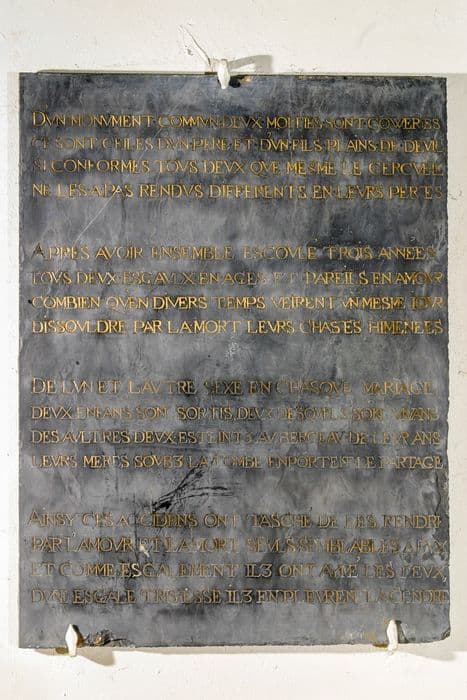 DVN MONVMENT COMMVN DEVX MOITIES SONT COWERTS
CE SONT CELLES DVN PERE ET DVN FILS PLAINS DE DEVIL
SI CONFORMES TOVS DEVX QVE MESME LE CERCVEIL
NE LES A PAS RENDVS DIFFERENTS EN LEVRS PERTES
APPRES AVOIR ENSEMBLE ESCOVLE TROIS ANNEES
TOVS DEVX ESGAVLX EN AGES ET PAREILS EN AMOVR
COMBIEN QVEN DIVERS TEMPS VEIRENT VN MESME IOVR
DISSOVLDRE PAR LA MORT LEVRS CHASTES HIMENEES
DE LVN ET LAVTRE SEXE EN CHASQVE MARIAGE
DEVX ENFANS SON SORTIS, DEVX DESQVELS SONT VIVANS
DES AVLTRES DEVX ESTEINTS AV BERCEAV DE LEVR ANS
LEVRS MERES SOVBZ LA TOMBE EN PORTENT LE PARTAGE
AINSY CES ACCIDENS ONT TASCHE DE LES RENDRE
PAR LAMOVR ET LA MORT SEVLS SEMBLABLES A EVX
ET COMME ESGALEMENT ILZ ONT AYME LES DEVX
DVNE ESGALE TRISTESSE ILZ EN PLEVRENT LA CENDRE